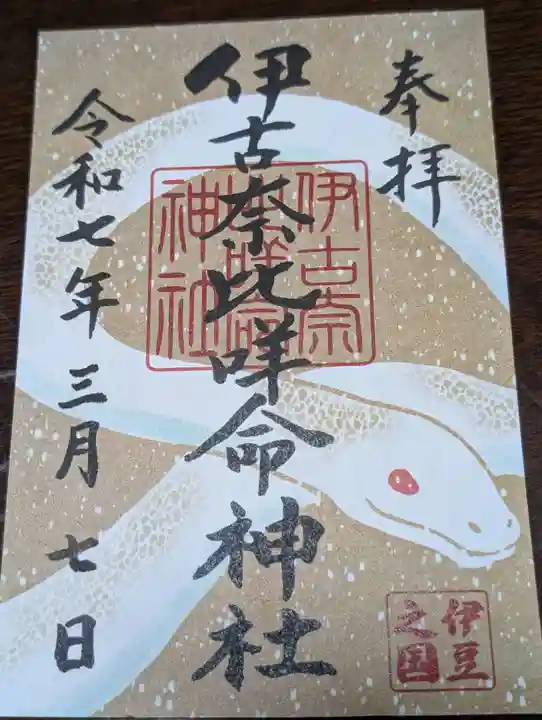 奉拝
伊古奈比咩命神社
伊古奈
比咩命
神社
令和七年三月七日
伊豆
之国